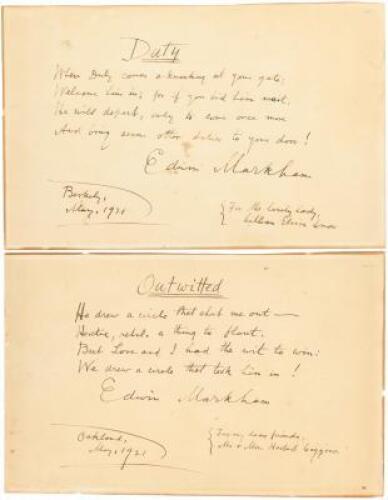 Duty
When Duty comes a-knocking at your gate,
Welcome him in; for if you bid him wait,
He will depart, only to come once more
And bring seven other duties to your door!
Edwin Markham
Berkeley,
May, 1921
For the lovely lady,
Lillian
Outwitted
He drew a circle that shut me out —
Heretic, rebel, a thing to flout.
But Love and I had the wit to win:
We drew a circle that took him in!
Edwin Markham
Oakland,
May, 1921
For my dear friends,
Mr & Mrs Herbert